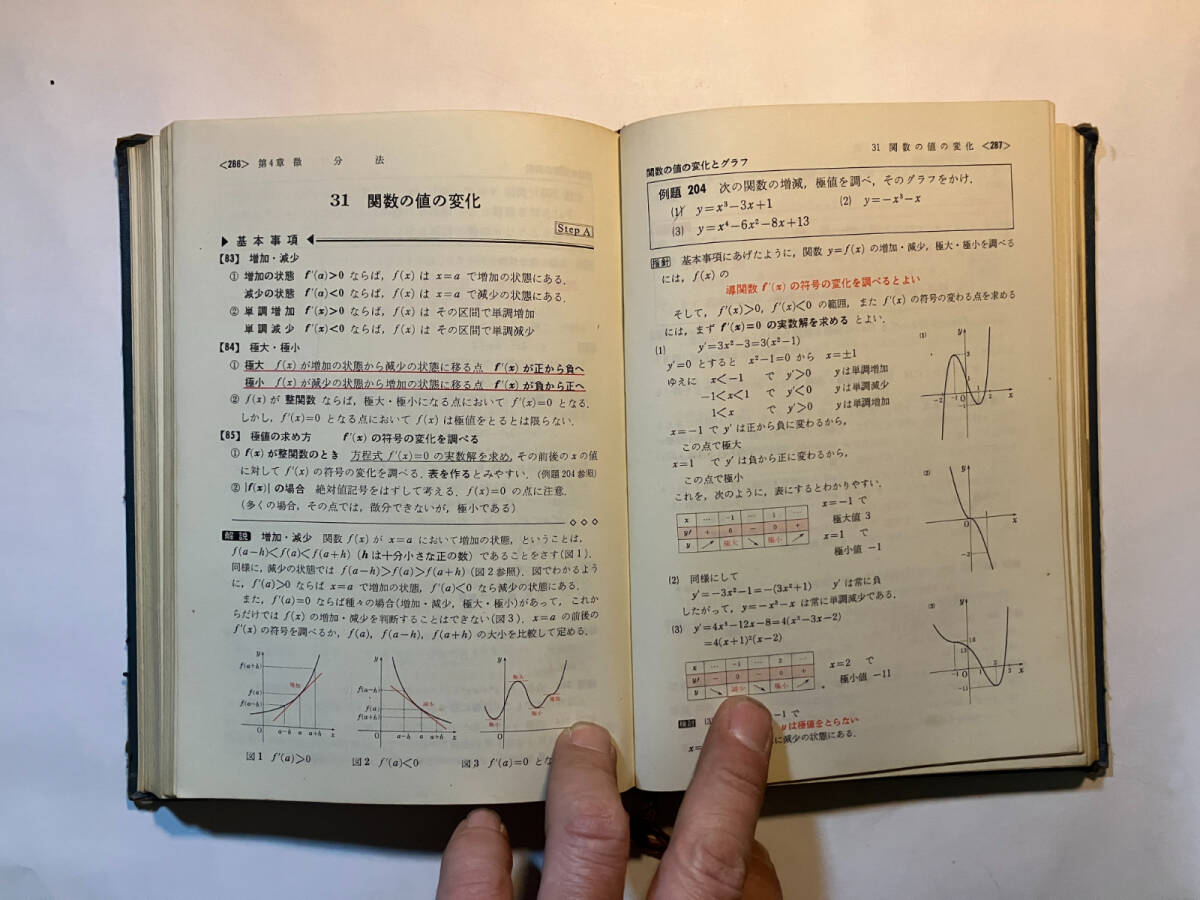 <286> 第4章 微 分 法
31 関数の値の変化
Step A
基本事項
【83】 増加・減少
① 増加の状態 f'(a)>0 ならば, f(x) は x=a で増加の状態にある.
減少の状態 f'(a)<0 ならば, f(x) は x=a で減少の状態にある.
② 単調増加 f'(x)>0 ならば, f(x) は その区間で単調増加
単調減少 f'(x)<0 ならば, f(x) は その区間で単調減少
【84】 極大・極小
① 極大 f(x) が増加の状態から減少の状態に移る点 f'(x) が正から負へ
極小 f(x) が減少の状態から増加の状態に移る点 f'(x) が負から正へ
② f(x) が整関数 ならば, 極大・極小になる点において f'(x)=0 となる.
しかし, f'(x)=0 となる点において f(x) は極値をとるとは限らない.
【85】 極値の求め方 f'(x) の符号の変化を調べる
① f(x) が整関数のとき 方程式 f'(x)=0 の実数解を求め, その前後の x の値
に対して f'(x) の符号の変化を調べる. 表を作るとみやすい. (例題204参照)
② |f(x)| の場合 絶対値記号をはずして考える. f(x)=0 の点に注意.
(多くの場合, その点では, 微分できないが, 極小である)
解説 増加・減少 関数 f(x) が x=a において増加の状態, ということは,
f(a-h)<f(a)<f(a+h) (h は十分小さな正の数) であることをさす(図1).
同様に, 減少の状態では f(a-h)>f(a)>f(a+h) (図2参照). 図でわかるよう
に, f'(a)>0 ならば x=a で増加の状態, f'(a)<0 なら減少の状態にある.
また, f'(a)=0 ならば種々の場合(増加・減少, 極大・極小)があって, これか
らだけでは f(x) の増加・減少を判断することはできない(図3). x=a の前後の
f'(x) の符号を調べるか, f(a), f(a-h), f(a+h) の大小を比較して定める.
y f(a+h) f(a) f(a-h) 増加 O a-h a a+h x
y f(a-h) f(a) f(a+h) 減少 O a-h a a+h x
y 極大 極小 極小 O
図1 f'(a)>0
図2 f'(a)<0
図3 f'(a)=0 とな
31 関数の値の変化 <287>
関数の値の変化とグラフ
例題 204 次の関数の増減, 極値を調べ, そのグラフをかけ.
(1) y=x³-3x+1 (2) y=-x³-x
(3) y=x⁴-6x²-8x+13
指針 基本事項にあげたように, 関数 y=f(x) の増加・減少, 極大・極小を調べる
には, f(x) の
導関数 f'(x) の符号の変化を調べるとよい
そして, f'(x)>0, f'(x)<0 の範囲, また f'(x) の符号の変わる点を求める
には, まず f'(x)=0 の実数解を求める とよい.
(1) y'=3x²-3=3(x²-1)
y'=0 とすると x²-1=0 から x=±1
ゆえに x<-1 で y'>0 y は単調増加
-1<x<1 で y'<0 y は単調減少
1<x で y'>0 y は単調増加
x=-1 で y' は正から負に変わるから,
この点で極大
x=1 で y' は負から正に変わるから,
この点で極小
これを, 次のように, 表にするとわかりやすい.
x … -1 … 1 …
y' + 0 - 0 +
y ↗ 極大 ↘ 極小 ↗
x=-1 で
極大値 3
x=1 で
極小値 -1
(1) y 3 -2 -1 O 1 -1 x
(2) 同様にして
y'=-3x²-1=-(3x²+1) y' は常に負
したがって, y=-x³-x は常に単調減少である.
(2) y O 1 x -2
(3) y'=4x³-12x-8=4(x³-3x-2)
=4(x+1)²(x-2)
x … -1 … 2 …
y' - 0 - 0 +
y ↘ 減少 ↘ 極小 ↗
x=2 で
極小値 -11
(3) y 16 13 -1 O 1 3 x
検討 (3) -1 で
y は極値をとらない
x= に減少の状態にある.